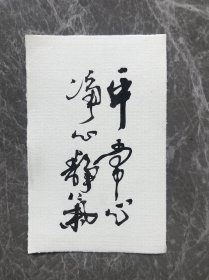 平常心
净心静氣